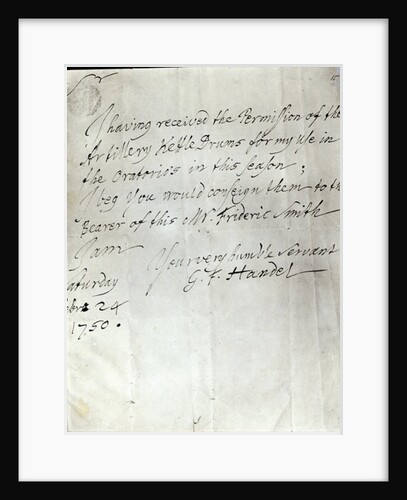 Sr
I having received the Permission of the
Artillery Kettle Drums for my use in
the Oratorio's in this Season;
I beg you would consign them to the
Bearer of this Mr. Frideric Smith
I am
Your very humble Servant
G. F. Handel
Saturday
24
1750.